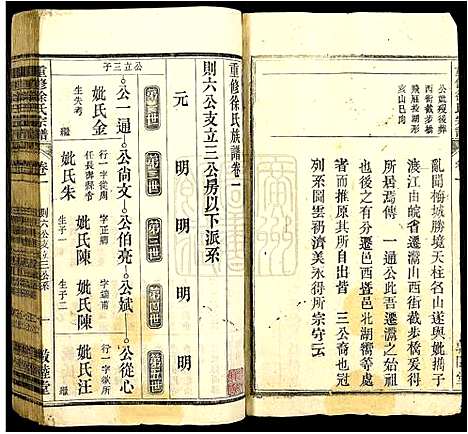 公墓現後葬
西街截步橋
飛雁投湖形
亥山巳向
亂聞梅城勝境天柱名山遂與妣攜子
渡江由皖省遷灊山西街截步橋成功
所居焉傳一通公此吾遷灊之始祖
也亦之有分遷邑西暨邑北湖嚮等處
者而推原其所自出皆三公裔也何
列系圖雲礽濟美永得所宗守云
重修徐氏族譜卷一
則六公支立三公房以下派系
元
明
明
明
明
第一世
第二世
第三世
第四世
第五世
公立三子
公一通
公尚文
公伯亮
公斌
公從心
妣氏金
生失考
繼
行一字從周
任長壽縣令
妣氏朱
生子一
字正卿
妣氏陳
行一字廷甫
妣氏陳
生子二
行一
妣氏汪
繼
重修徐氏宗譜
卷一
則六公支立三公系
一
敦睦堂